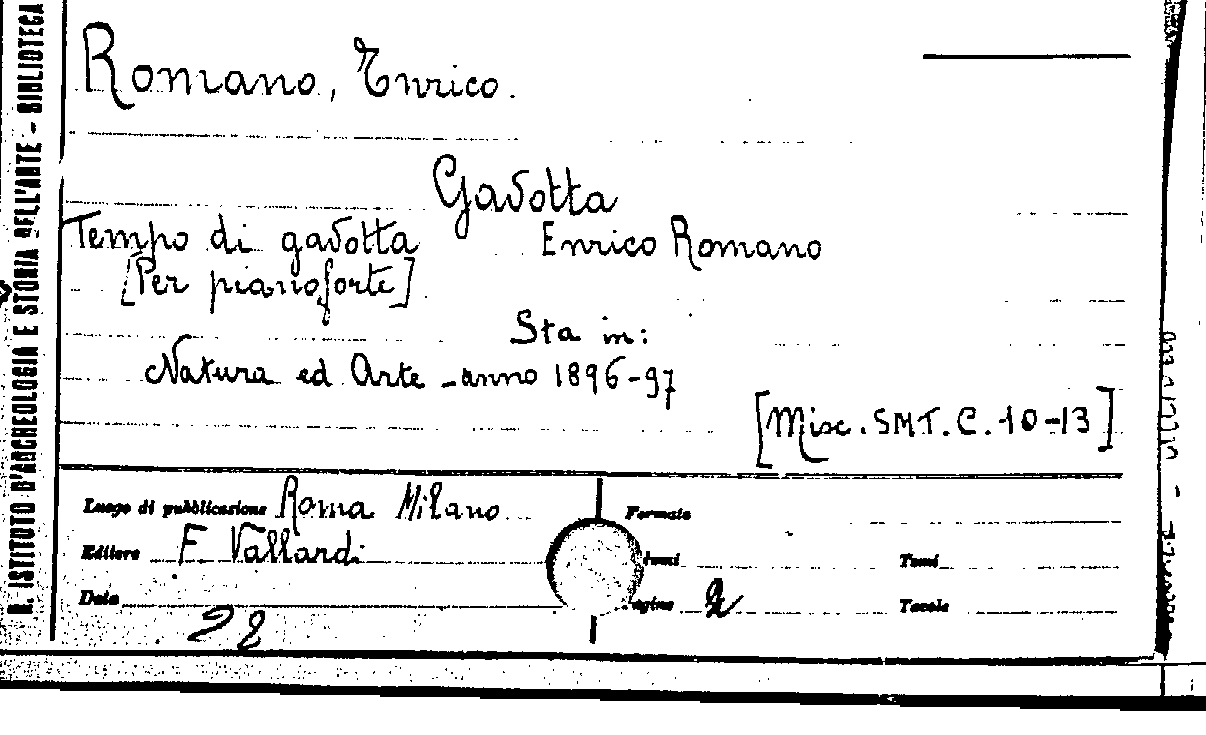 R. ISTITUTO D'ARCHEOLOGIA E STORIA DELL'ARTE - BIBLIOTECA
Romano, Enrico.
Gavotta
Tempo di gavotta Enrico Romano
[Per pianoforte]
Sta in:
Natura ed Arte - anno 1896-97
[Misc. SMT. C. 10-13]
Luogo di pubblicazione Roma Milano Formato
Editore F. Vallardi lumi Tomi
Data agine 2 Tavole